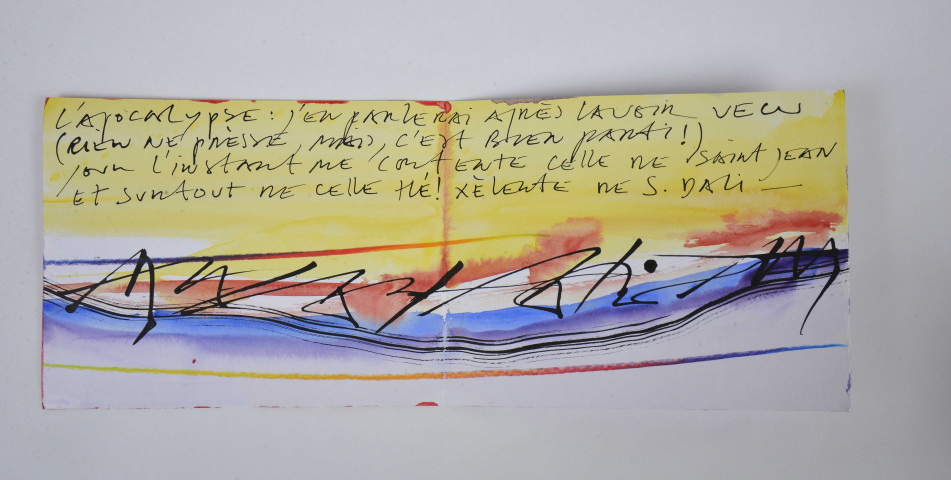 L'APOCALYPSE : J'EN PARLERAI APRÈS L'AVOIR VECU
(RIEN NE PRESSE, MAIS, C'EST BIEN PARTI !)
POUR L'INSTANT ME CONTENTE CELLE DE SAINT JEAN
ET SURTOUT DE CELLE HÉ! XÈLENTE DE S. DALI —